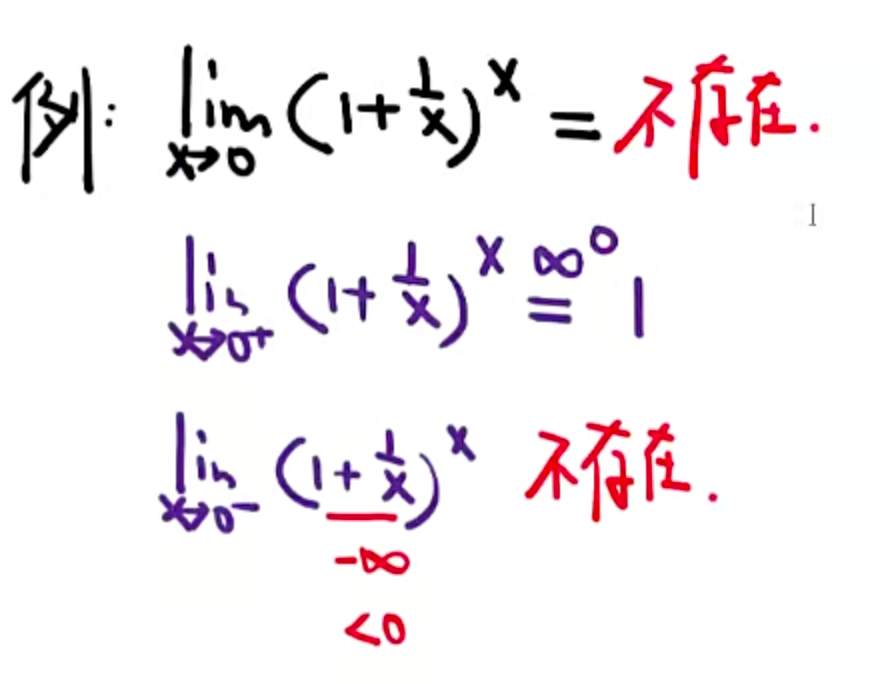 例: lim x→0 (1+1/x)^x = 不存在.
lim x→0⁺ (1+1/x)^x = ∞⁰ 1
lim x→0⁻ (1+1/x)^x 不存在.
-∞
<0